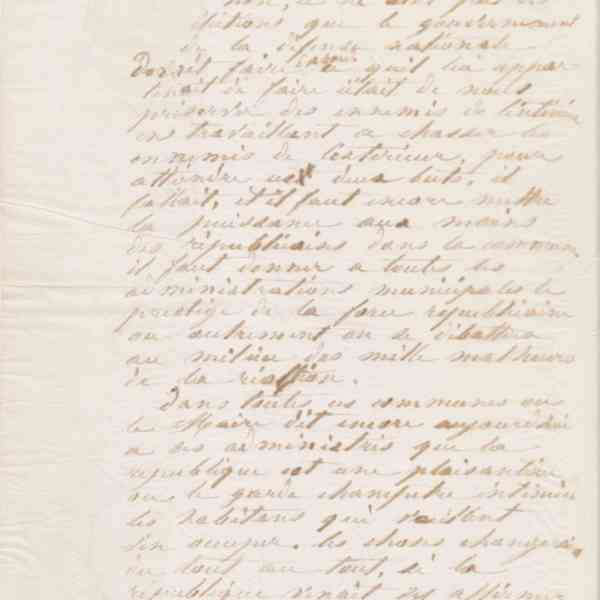 non, ce ne sont pas des
éditions que le gouvernement
de la défense nationale
devrait faire, ce qu'il lui appar-
tenait de faire était de nous
préserver des ennemis de l'intérieur
en travaillant a chasser les
ennemis de l'exterieur, pour
atteindre ces deux buts, il
fallait, et il faut encore mettre
la puissance aux mains
des républicains dans la commune,
il faut donner a toutes les
administrations municipales le
prestige de la force républicaine
ou autrement on se débattra
au milieu des mille malheurs
de la réaction.
Dans toutes ces communes ou
le Maire dit encore aujourd'hui
a ses administrés que la
république est une plaisanterie
ou le garde champetre intimide
les habitans qui veullent
s'en occuper. les choses changerai
du tout au tout, si la
république venait des affirmer